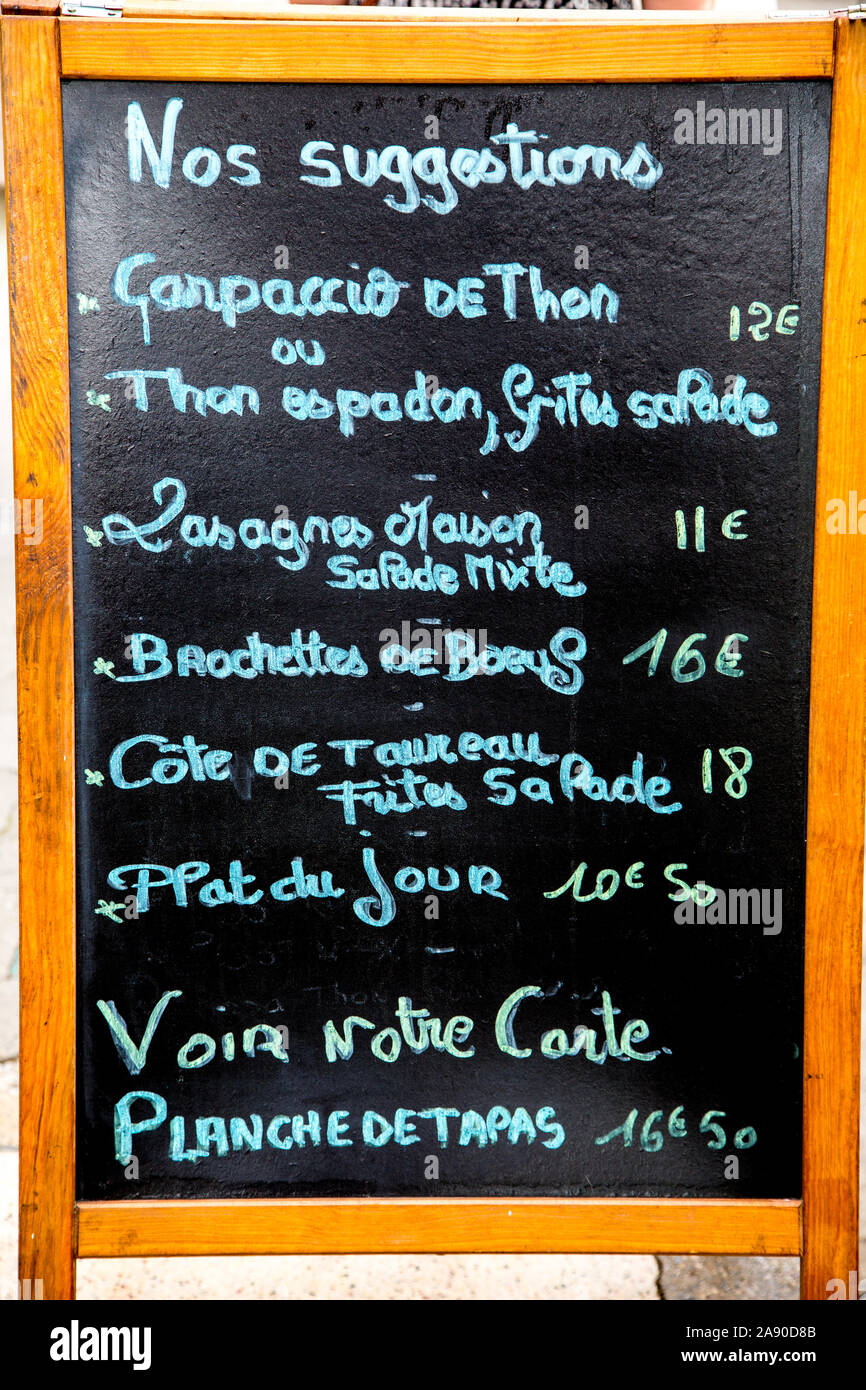 Nos suggestions
* Carpaccio DE Thon 12€
ou
* Thon espadon, frites salade
-
* Lasagnes Maison 11€
Salade Mixte
-
* Brochettes DE Boeuf 16€
-
* Côte DE Taureau 18
Frites Salade
-
* Plat du jour 10€50
-
Voir Notre Carte.
PLANCHE DE TAPAS 16€50
alamy
Image ID: 2A90D8B
www.alamy.com